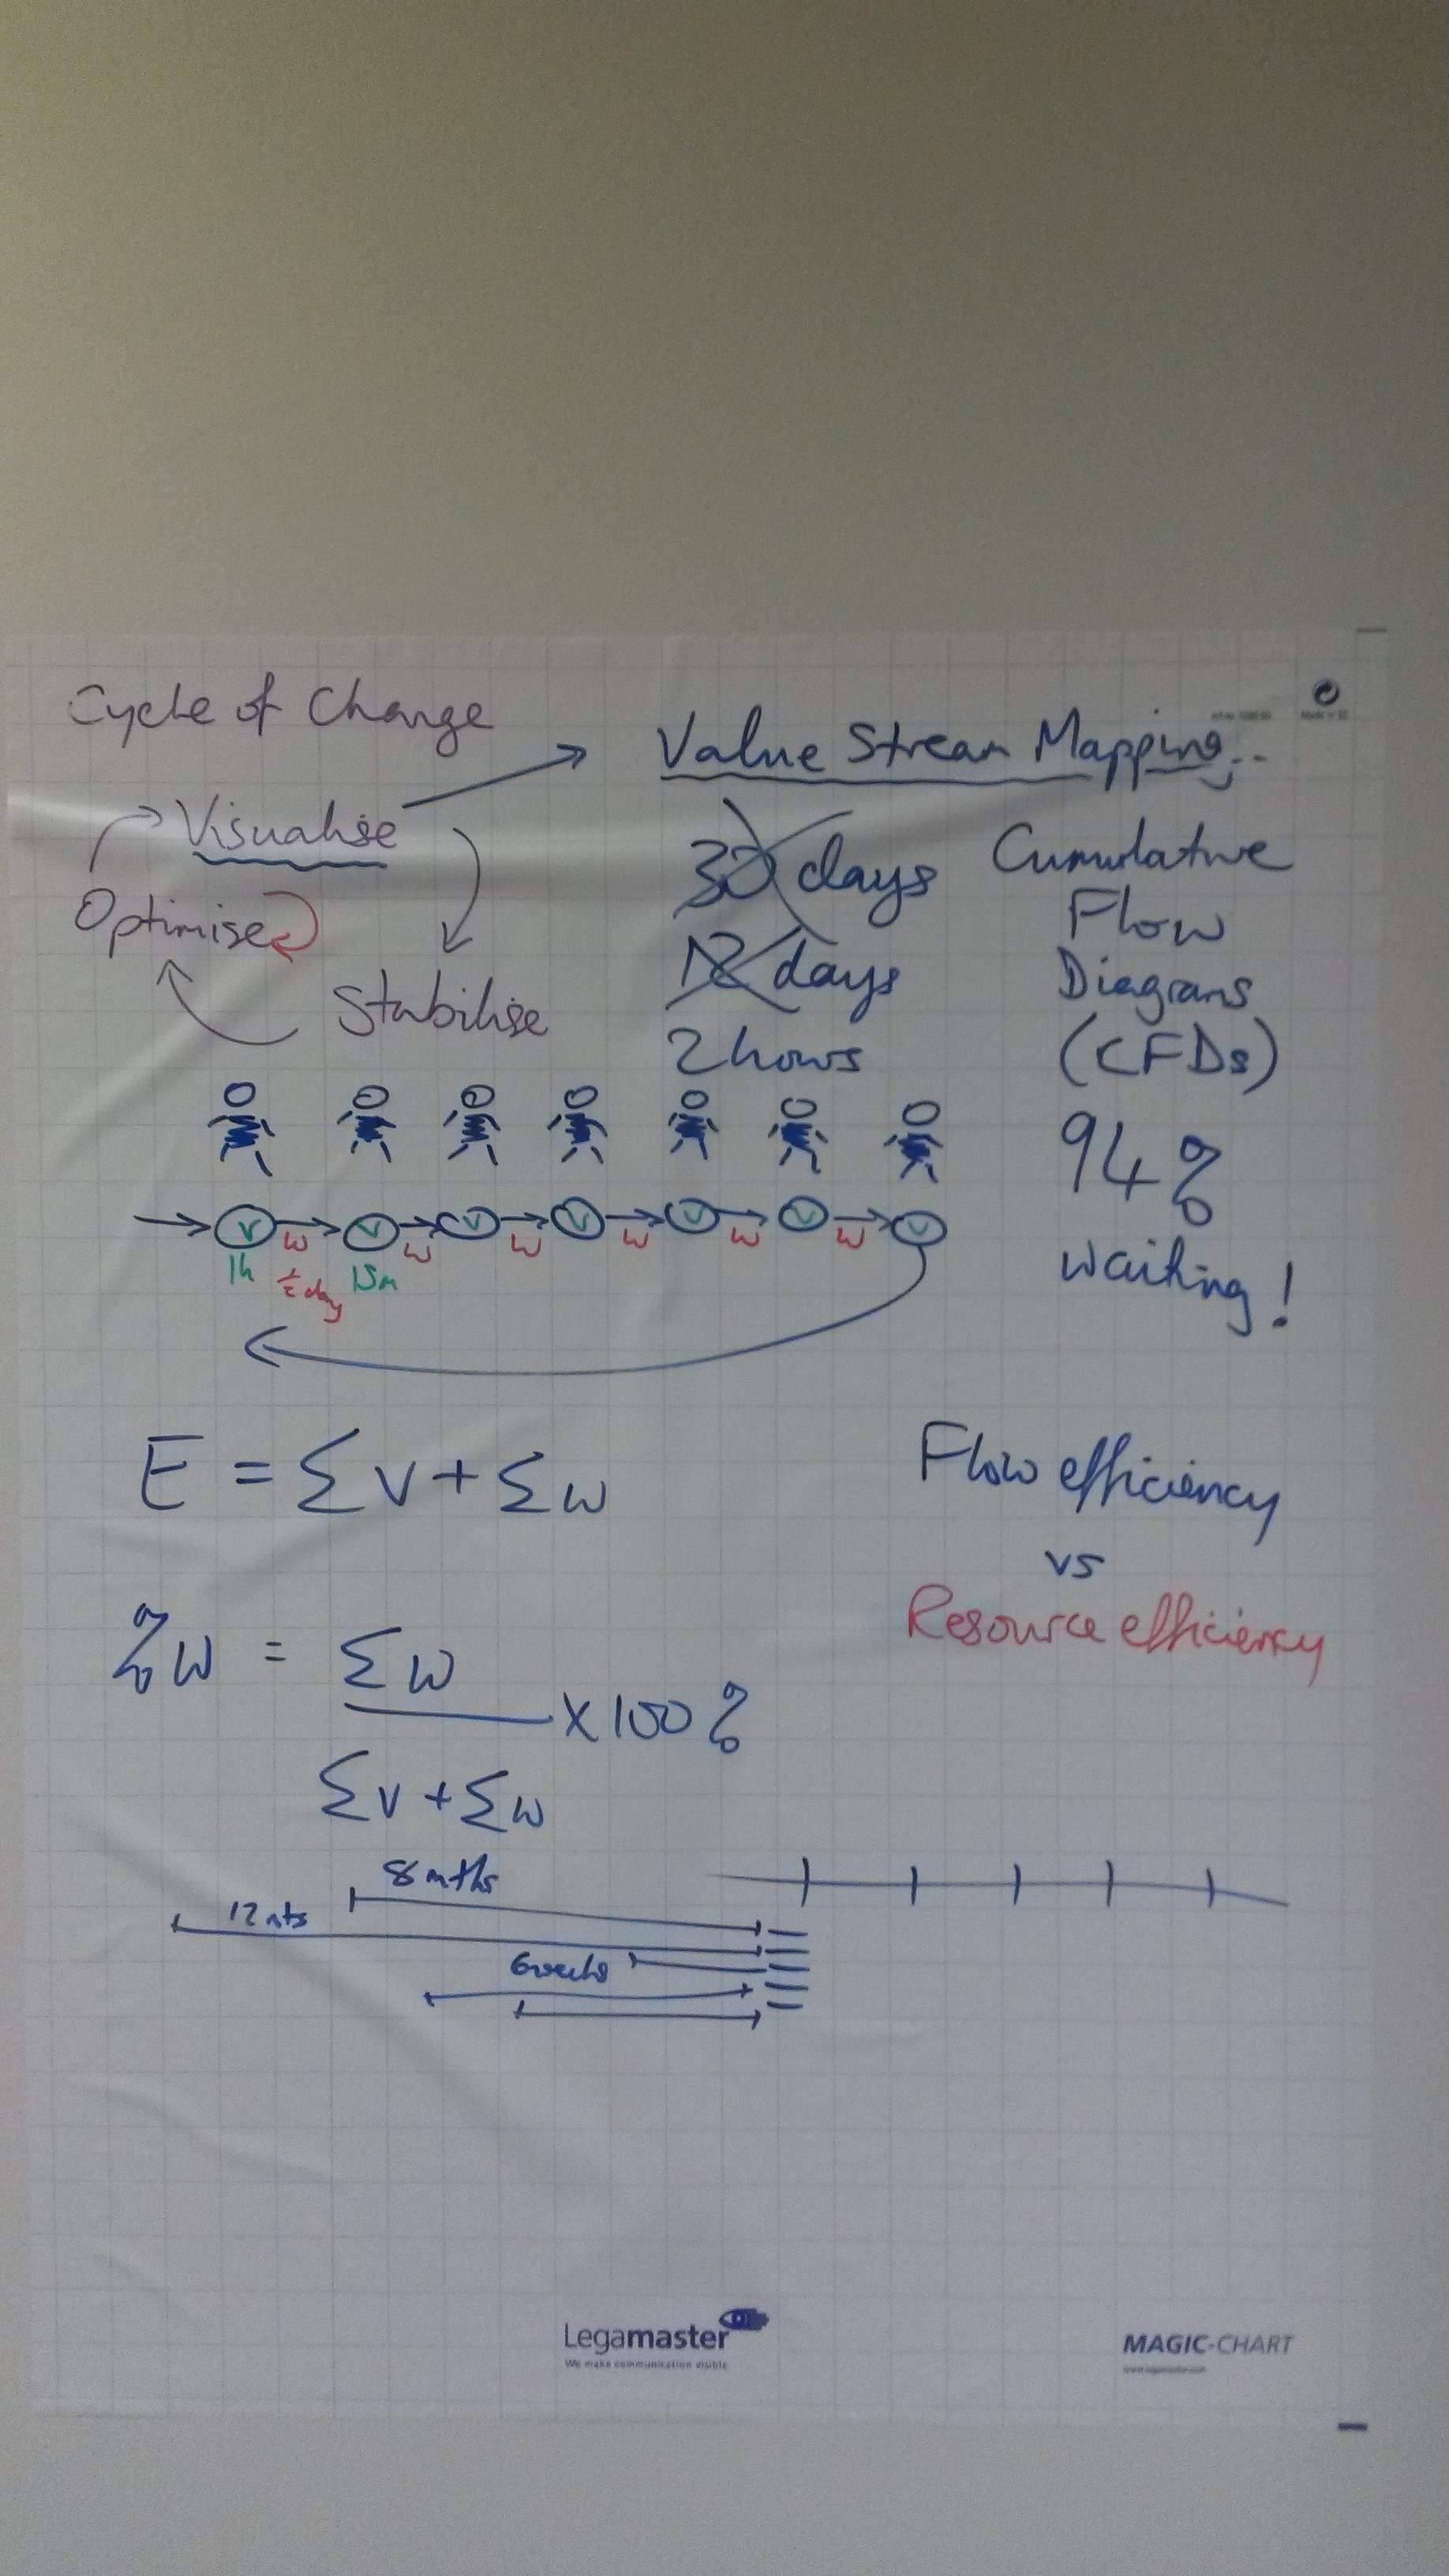 Cycle of Change
Visualise
Optimise
Stabilise
Value Stream Mapping...
30 days
12 days
2 hours
Cumulative
Flow
Diagrams
(CFDs)
94%
waiting!
V W V W V W V W V W V W V
1h ½ day 15m
E = Σ V + Σ W
Flow efficiency
vs
Resource efficiency
% W = Σ W
x 100 %
Σ V + Σ W
8 mths
12 mts
6 weeks
Legamaster
We make communication visible
MAGIC-CHART
www.legamaster.com